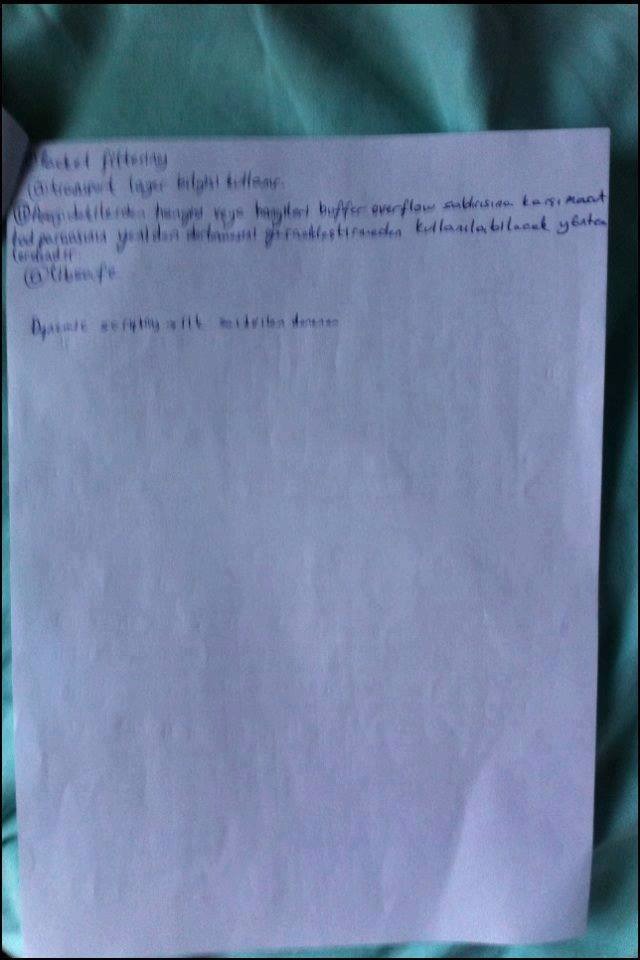 Packet filtering
@ transport layer bilgisi kullanır.
Aşağıdakilerden hangisi veya hangileri buffer overflow saldırısına karşı mevcut
kod parçasını yeniden derlemesi gerçekleştirmeden kullanılabilecek yöntem
lerdendir
@ libsafe